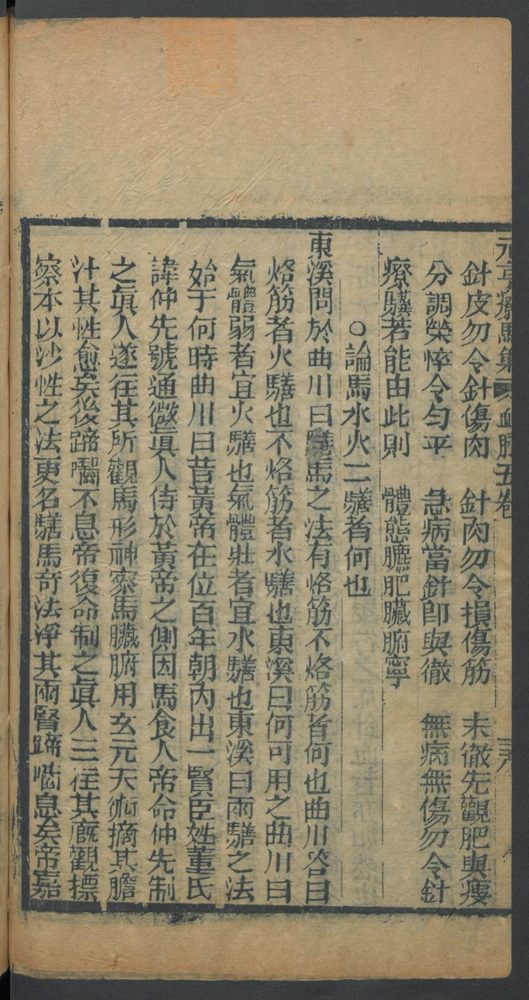 元亨療馬集 血脈 五卷
針皮勿令針傷肉 針肉勿令損傷筋 未徹先觀肥與瘦
分調榮悴令勻平 急病當針卽與徹 無病無傷勿令針
療驥若能由此則 體態臕肥臟腑寧
○論馬水火二騸者何也
東溪問於曲川曰騸馬之法有烙筋不烙筋者何也曲川答曰
烙筋者火騸也不烙筋者水騸也東溪曰何可用之曲川曰
氣體弱者宜火騸也氣體壯者宜水騸也東溪曰兩騸之法
始于何時曲川曰昔黃帝在位百年朝內出一賢臣姓董氏
諱仲先號通微眞人侍於黃帝之側因馬食人帝命仲先制
之眞人遂往其所觀馬形神察馬臟腑用玄元天術摘其膽
汁其性愈矣後蹄嚙不息帝復命制之眞人三往其廐觀摽
察本以沙性之法更名騸馬奇法淨其兩賢蹄嚙息矣帝嘉